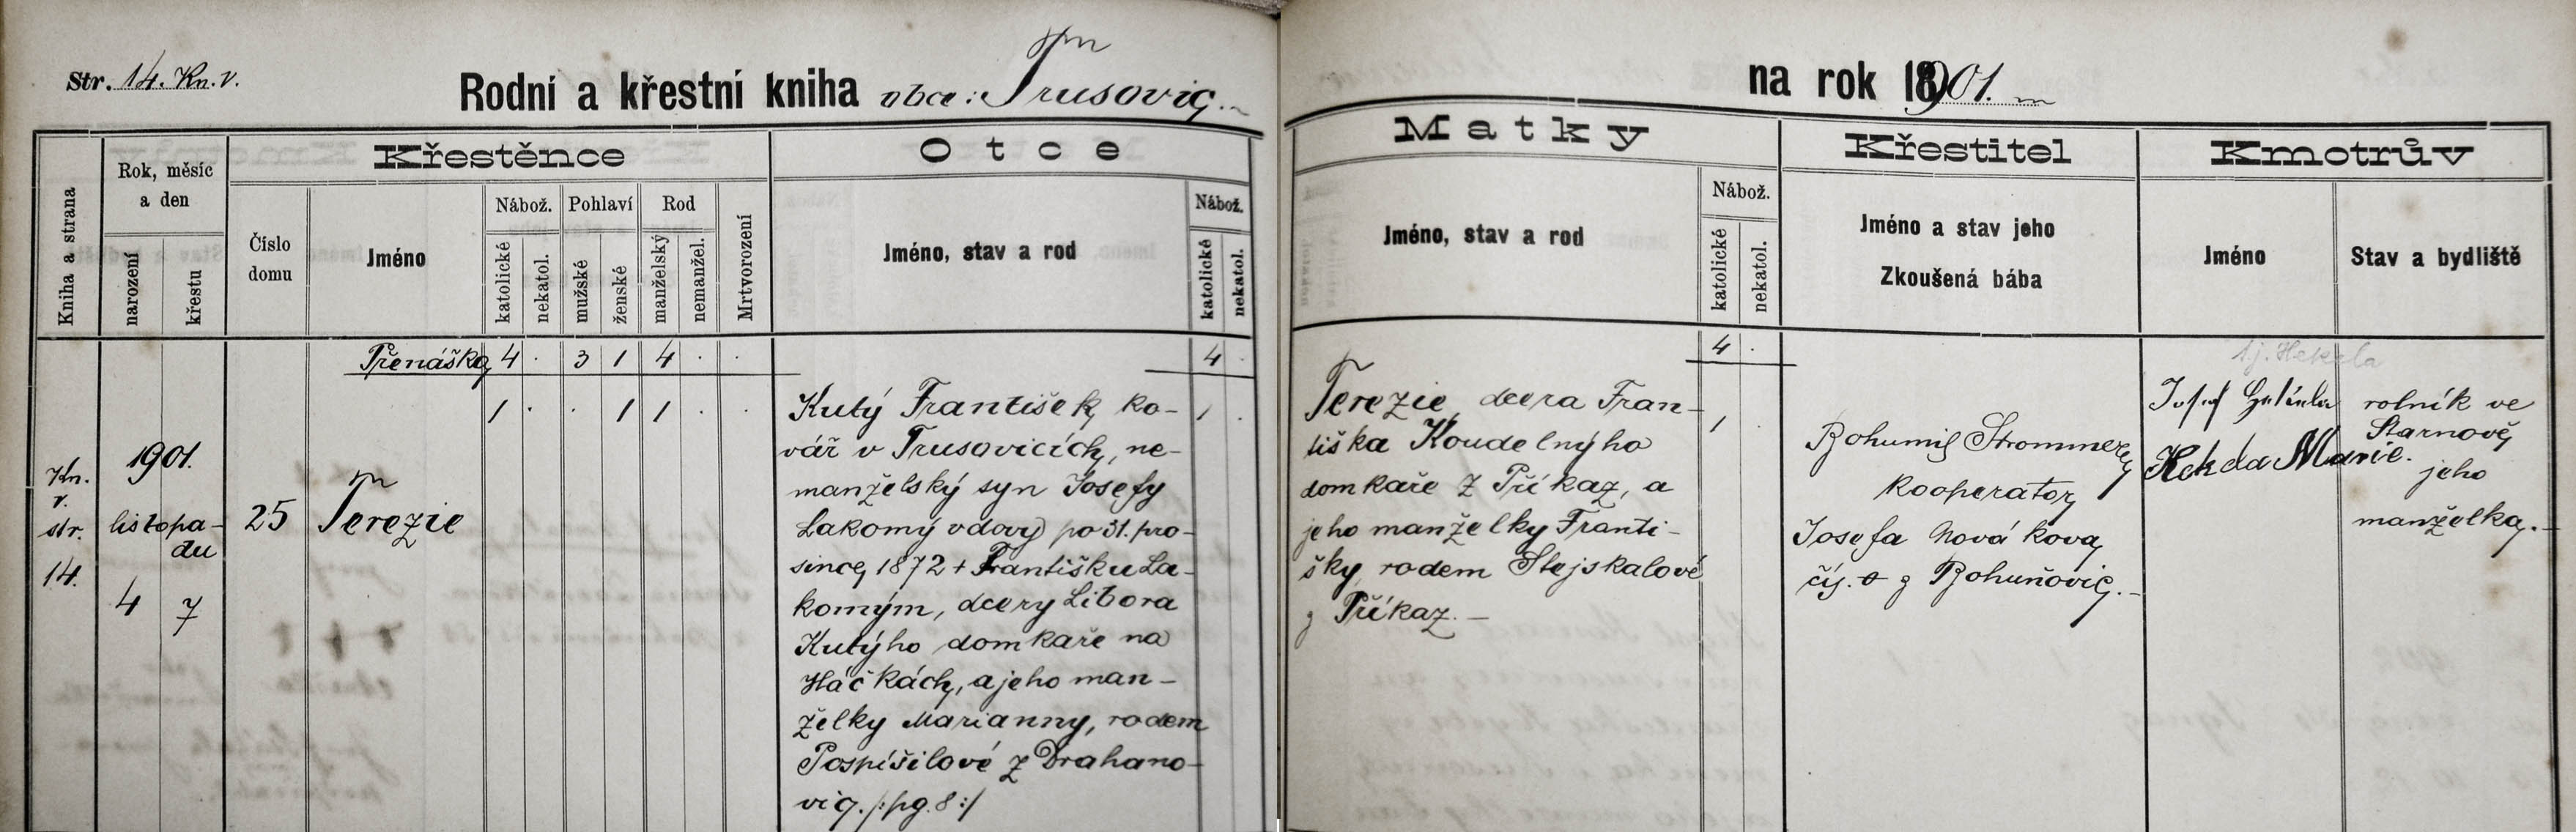 Str. 14. Kn. V.
Rodní a křestní kniha obce: Trusovic.
na rok 1901.
Kniha a strana
Rok, měsíc
a den
narození
křestu
Křestěnce
Číslo
domu
Jméno
Nábož.
katolické
nekatol.
Pohlaví
mužské
ženské
Rod
manželský
nemanžel.
Mrtvorození
Otce
Jméno, stav a rod
Nábož.
katolické
nekatol.
Matky
Jméno, stav a rod
Nábož.
katolické
nekatol.
Křestitel
Jméno a stav jeho
Zkoušená bába
Kmotrův
Jméno
Stav a bydliště
Přenáška 4 · 3 1 4 · · 4 · 4 ·
Kn.
V.
str.
14.
1901.
listopa-
du
4 7
25
Terezie
1 · · 1 1 · ·
Kutý František, ko-
vář v Trusovicích, ne-
manželský syn Josefy
Lakomý vdovy po 31. pro-
since 1872 + Františku La-
komým, dcery Libora
Kutýho domkaře na
Háčkách, a jeho man-
želky Marianny, rodem
Pospíšilové z Drahano-
vic. /: pg. 8 :/
1 ·
Terezie, dcera Fran-
tiška Koudelnýho
domkaře z Příkaz, a
jeho manželky Franti-
šky rodem Stejskalové
z Příkaz. —
1 ·
Bohumil Strommer
kooperator
Josefa Nováková
čís. z Bohuňovic. —
t.j. Hekela
Josef
Marie.
rolník ve
Starnově
jeho
manželka. —